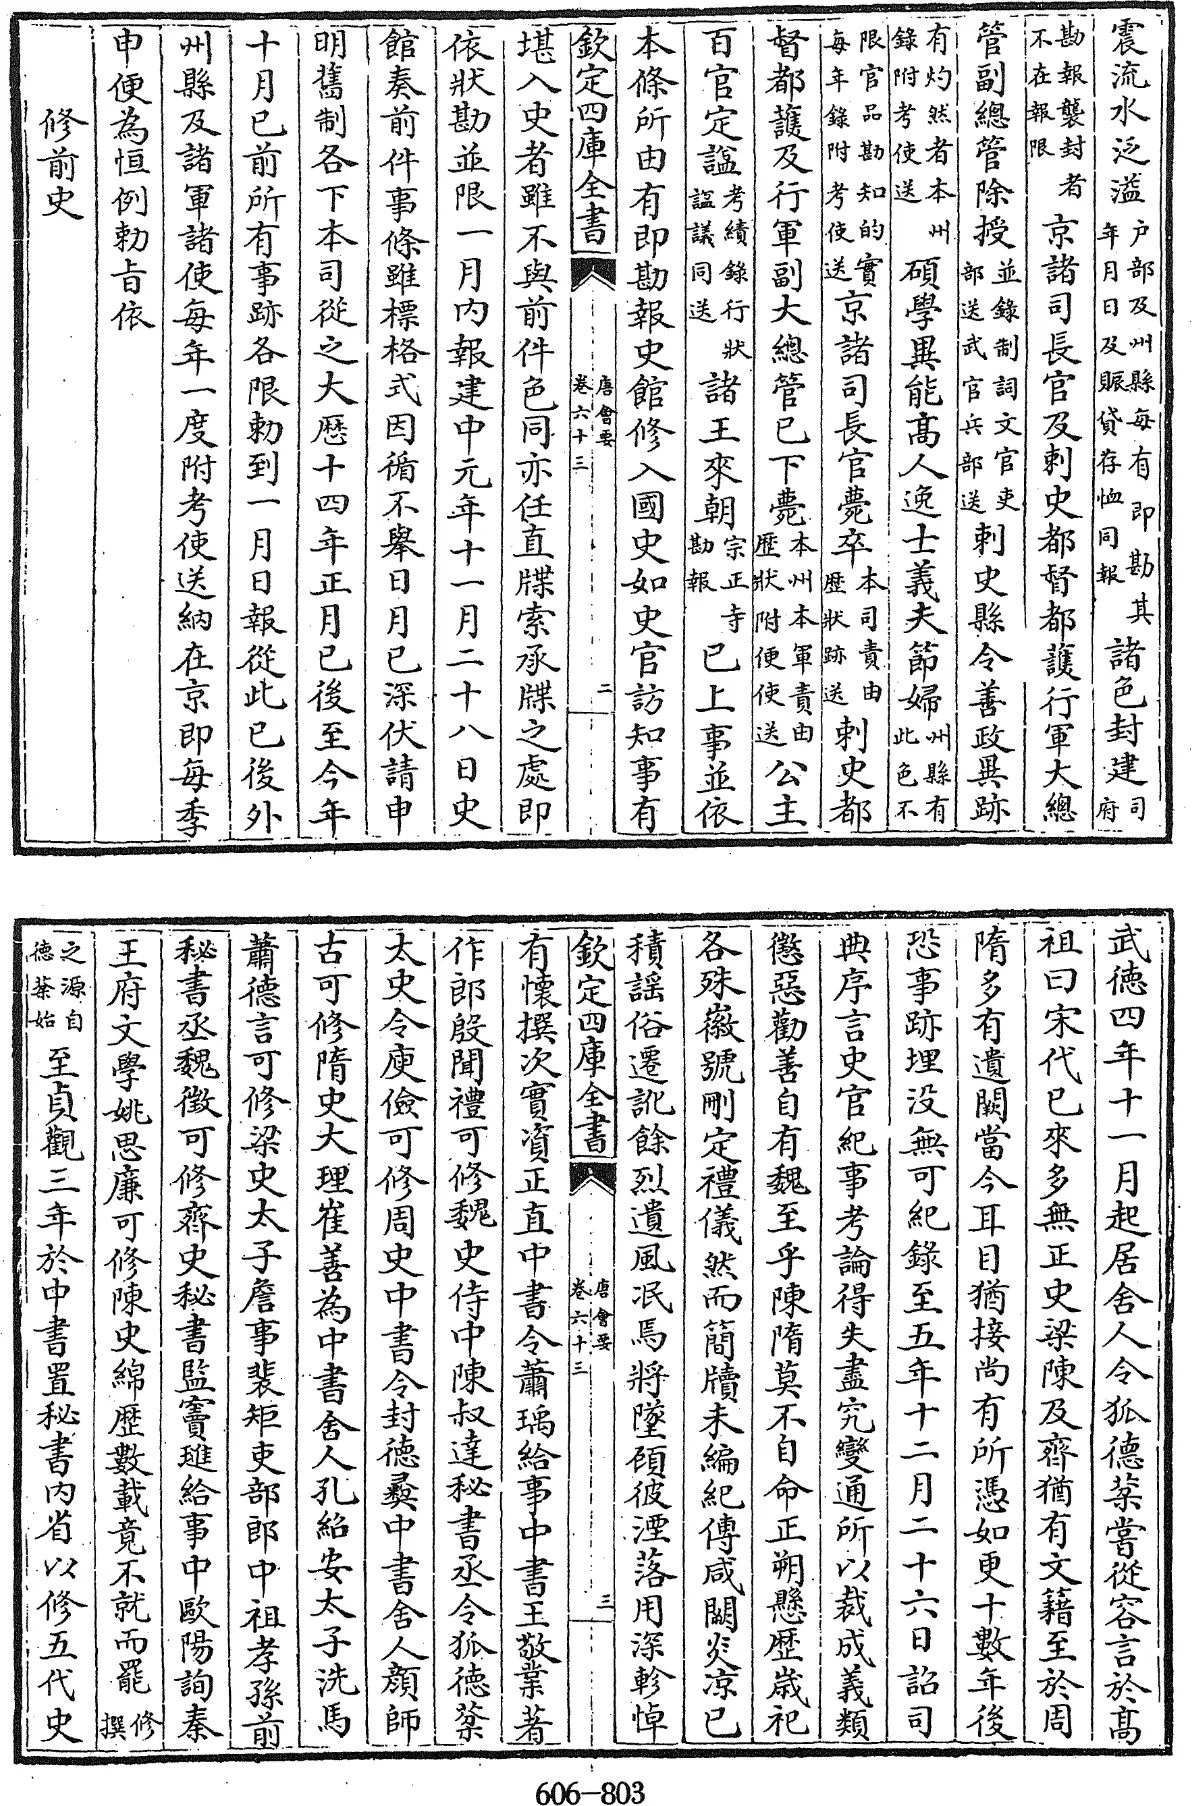 震流水泛溢戶部及州縣每有即勘其年月日及賑貸存恤同報諸色封建司府
勘報襲封者不在報限京諸司長官及刺史都督都護行軍大總
管副總管除授並錄制詞文官吏部送武官兵部送刺史縣令善政異跡
有灼然者本州錄附考使送碩學異能髙人逸士義夫節婦州縣有此色不
限官品勘知的實每年錄附考使送京諸司長官薨卒本司責由歷狀跡送刺史都
督都護及行軍副大總管已下薨本州本軍責由歷狀附便使送公主
百官定諡考績錄行狀諡議同送諸王來朝宗正寺勘報已上事並依
本條所由有即勘報史館修入國史如史官訪知事有
欽定四庫全書 唐會要 卷六十三 二
堪入史者雖不與前件色同亦任直牒索承牒之處即
依狀勘並限一月內報建中元年十一月二十八日史
館奏前件事條雖標格式因循不舉日月已深伏請申
明舊制各下本司從之大歷十四年正月已後至今年
十月已前所有事跡各限勅到一月日報從此已後外
州縣及諸軍諸使每年一度附考使送納在京即每季
申便為恒例勅旨依
修前史
武德四年十一月起居舍人令狐德棻嘗從容言於髙
祖曰宋代已來多無正史梁陳及齊猶有文籍至於周
隋多有遺闕當今耳目猶接尚有所憑如更十數年後
恐事跡埋没無可紀錄至五年十二月二十六日詔司
典序言史官紀事考論得失盡究變通所以裁成義類
懲惡勸善自有魏至乎陳隋莫不自命正朔懸歷歲祀
各殊徽號刪定禮儀然而簡牘未編紀傳咸闕炎凉已
積謡俗遷訛餘烈遺風泯焉將墜顧彼湮落用深軫悼
欽定四庫全書 唐會要 卷六十三 三
有懷撰次實資正直中書令蕭瑀給事中書王敬業著
作郎殷聞禮可修魏史侍中陳叔達秘書丞令狐德棻
太史令庾儉可修周史中書令封德彝中書舍人顏師
古可修隋史大理崔善為中書舍人孔紹安太子洗馬
蕭德言可修梁史太子詹事裴矩吏部郎中祖孝孫前
秘書丞魏徵可修齊史秘書監竇璡給事中歐陽詢秦
王府文學姚思廉可修陳史綿歷數載竟不就而罷修撰
之源自德棻始至貞觀三年於中書置秘書内省以修五代史
606-803